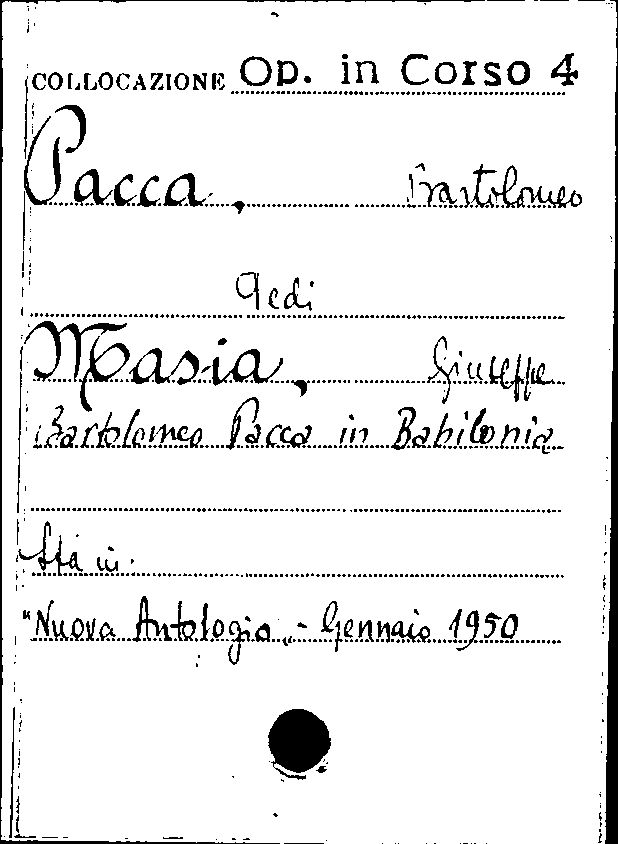 COLLOCAZIONE Op. in Corso 4
Pacca, Bartolomeo
Vedi
Masia, Giuseppe
Bartolomeo Pacca in Babilonia
Sta in.
"Nuova Antologia„ - Gennaio 1950